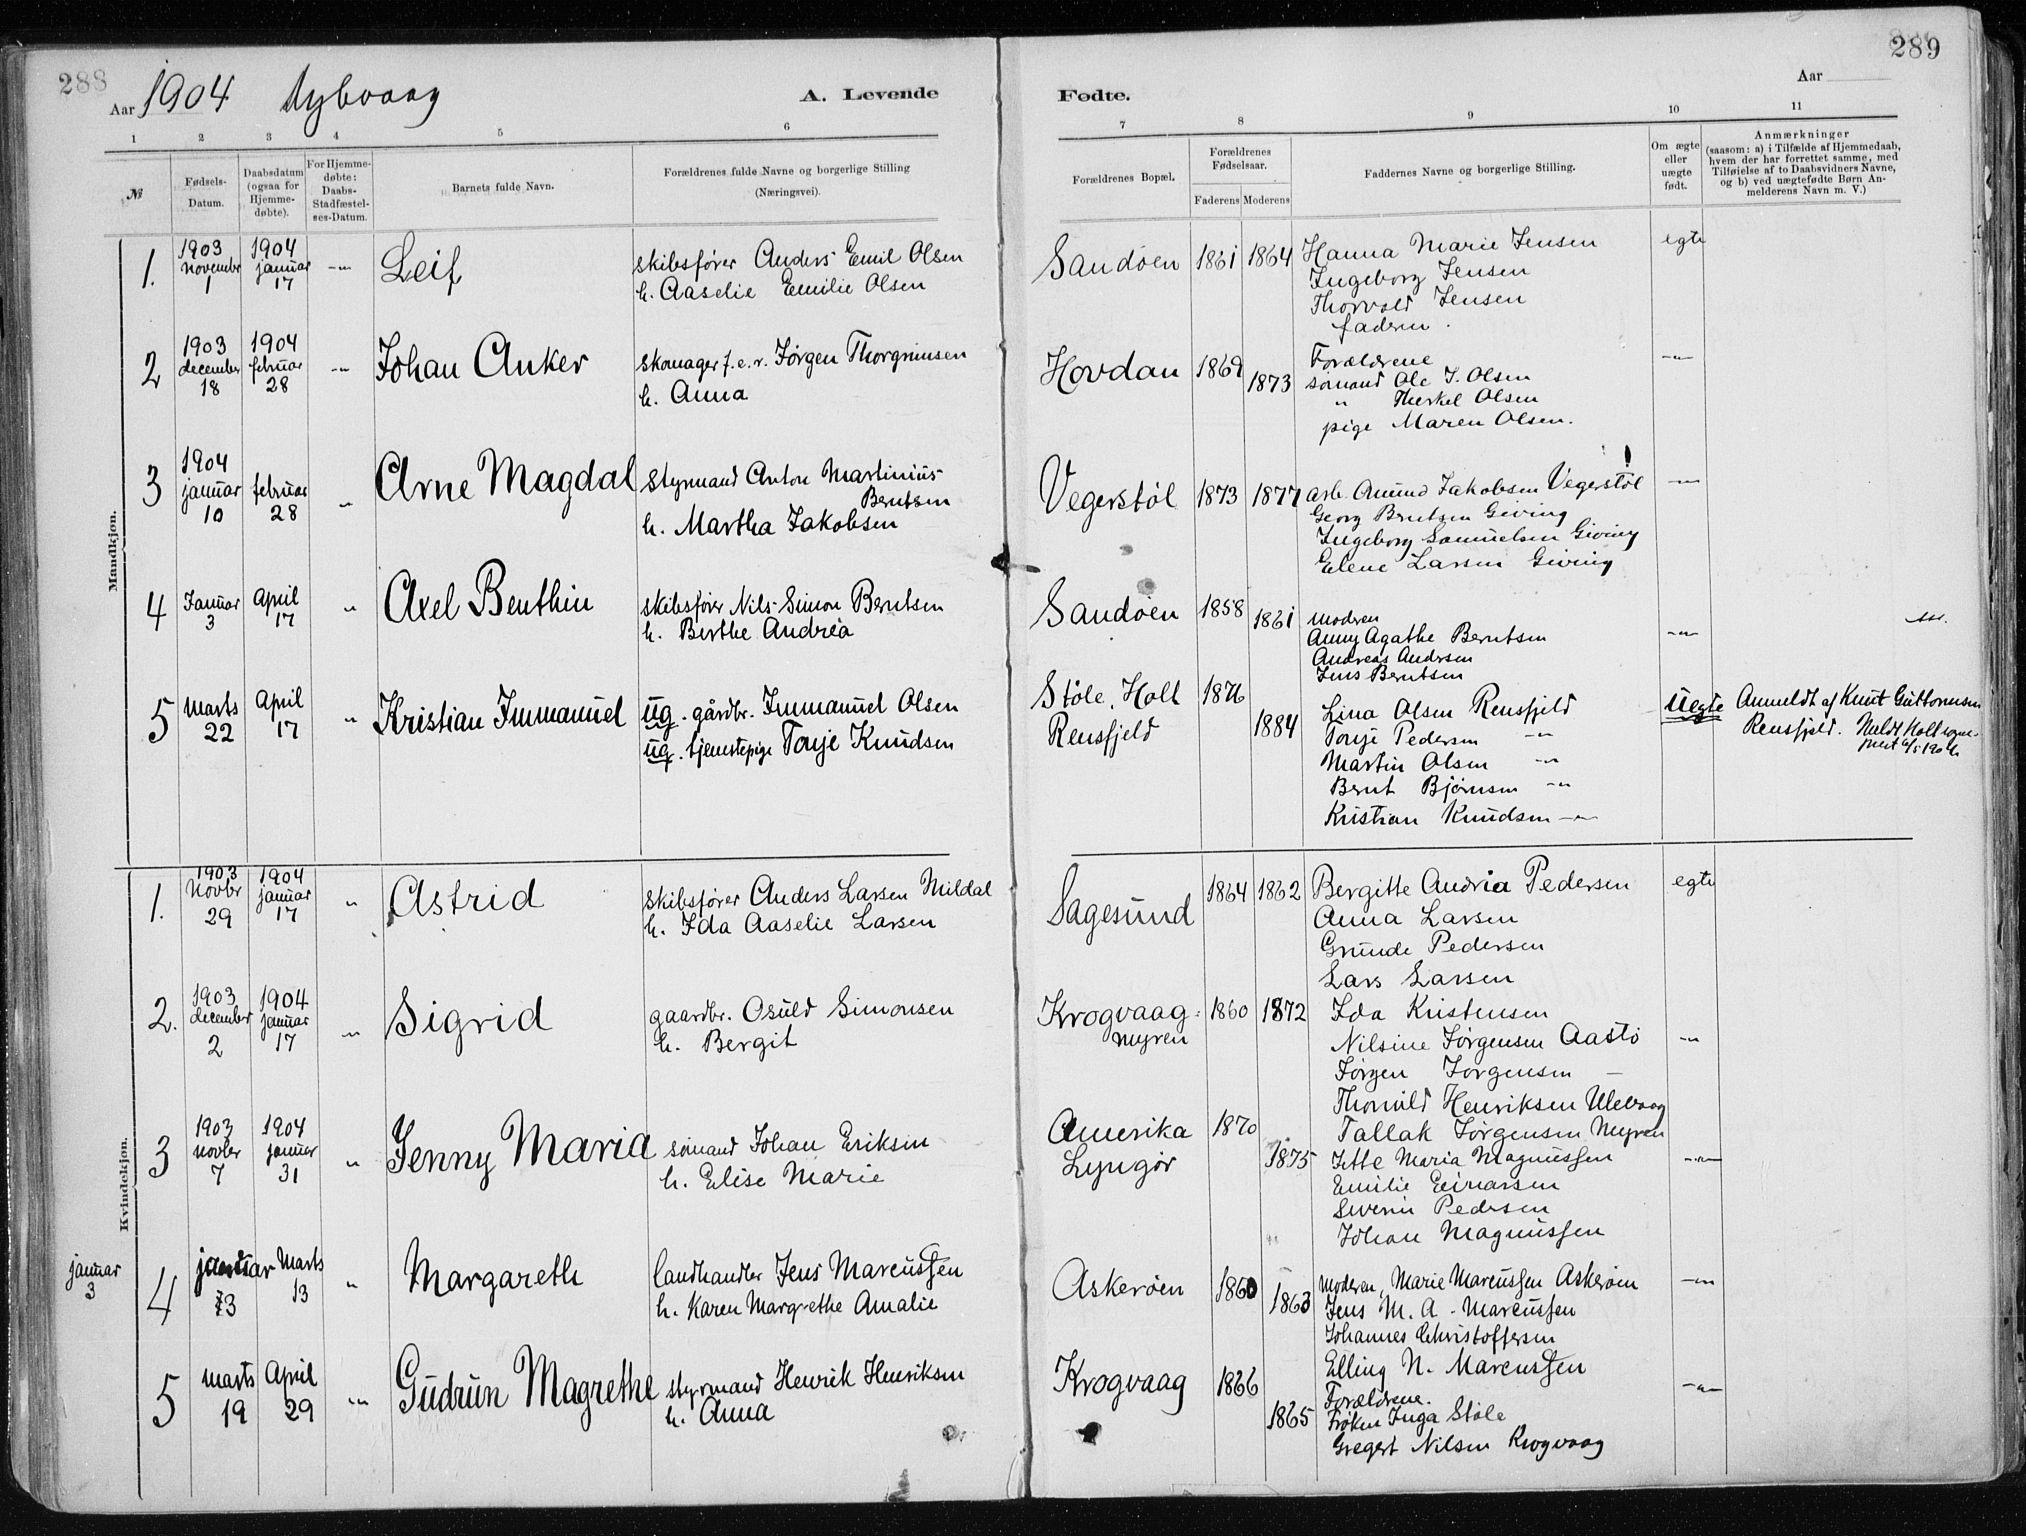 288
289
Aar 1904 Dybvaag
A. Levende
Fødte.
Aar
1 2 3 4 5 6
7 8 9 10 11
№
Fødsels-
Datum.
Daabsdatum
(ogsaa for
Hjemme-
døbte).
For Hjemme-
døbte:
Daabs-
Stadfæstel-
ses-Datum.
Barnets fulde Navn.
Forældrenes fulde Navne og borgerlige Stilling
(Næringsvei).
Forældrenes Bopæl.
Forældrenes
Fødselsaar.
Faderens Moderens
Faddernes Navne og borgerlige Stilling.
Om ægte
eller
uægte
født.
Anmærkninger
(saasom: a) i Tilfælde af Hjemmedaab,
hvem der har forrettet samme, med
Tilføielse af to Daabsvidners Navne,
og b) ved uægtefødte Børn An-
melderens Navn m. V.)
Mandkjøn.
1.
1903
november
1
1904
januar
17
-"-
Leif
skibsfører Anders Emil Olsen
h. Aaselie Emilie Olsen
Sandøen
1861
1864
Hanna Marie Jensen
Ingeborg Jensen
Thorvald Jensen
faderen.
egte
2
1903
december
18
1904
februar
28
-"-
Johan Anker
skomager f.e.r. Jørgen Thorgrimsen
h. Anna
Hovdan
1869
1873
Forældrene
sømand Ole J. Olsen
" Therkel Olsen
pige Maren Olsen.
-"-
3
1904
januar
10
februar
28
"
Arne Magdal
styrmand Anton Martinius
Berntsen
h. Martha Jakobsen
Vegerstøl
1873
1877
arb. Amund Jakobsen Vegerstøl
Georg Berntsen Giving
Ingeborg Samuelsen Giving
Elene Larsen Giving
-"-
4
Januar
3
April
17
"
Axel Benthin
skibsfører Nils Simon Berntsen
h. Birthe Andrea
Sandøen
1858
1861
moderen
Anny Agathe Berntsen
Andreas Andersen
Jens Berntsen
-"-
5
Marts
22
April
17
"
Kristian Immanuel
ug. gårdbr. Immanuel Olsen
ug. tjenestepige Tonje Knudsen
Støle, Holt
Rensfjeld
1876
1884
Lina Olsen Rensfjeld
Tonje Pedersen -"-
Martin Olsen -"-
Bernt Bjørnsen -"-
Kristian Knudsen -"-
uegte
Anmeldt af Knut Guttormsen
Rensfjeld. Meldt Holt sogne-
prest 6/5 1904
Kvindekjøn.
1.
1903
Novbr
29
1904
januar
17
"
Astrid
skibsfører Anders Larsen Mildal
h. Ida Aaselie Larsen
Sagesund
1864
1862
Bergitte Andria Pedersen
Anna Larsen
Grunde Pedersen
Lars Larsen
egte
2.
1903
december
2
1904
januar
17
"
Sigrid
gaardbr. Osuld Simonsen
h. Bergit
Krogvaag-
myren
1860
1872
Ida Kristensen
Nilsine Jørgensen Aastø
Jørgen Jørgensen -
Thorvild Henriksen Ulevaag
Tallak Jørgensen Myren
-"-
3
1903
Novber
7
1904
januar
31
"
Jenny Maria
sømand Johan Eriksen
h. Elise Marie
Amerika
Lyngør
1870
1875
Jette Maria Magnussen
Emilie Einarsen
Severin Pedersen
Johan Magnussen
-"-
januar
3
4
januar
3
Marts
13
"
Margareth
landhandler Jens Marcussen
h. Karen Margrethe Amalie
Askerøen
1860
1863
Moderen, Marie Marcussen Askerøen
Jens M. A. Marcussen
Johannes Christoffersen
Elling N. Marcussen
-"-
5
marts
19
April
29
-"-
Gudrun Magrethe
styrmand Henrik Henriksen
h. Anna
Krogvaag
1866
1865
Forældrene.
Frøken Inga Støle
Gregert Nilsen Krogvaag
-"-